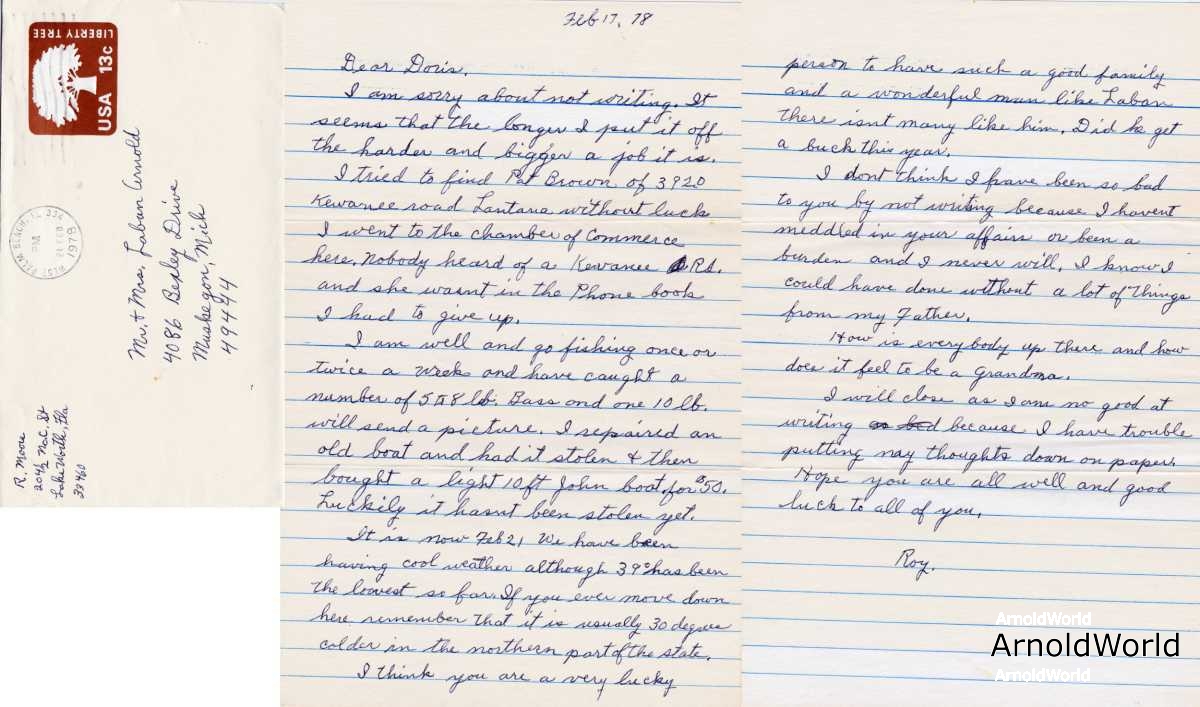 LIBERTY TREE
USA 13c
WEST PALM BEACH, FL 334
PM
21 FEB
1978
Mr. + Mrs. Laban Arnold
4086 Besley Drive
Muskegon, Mich
49444
R. Moore
204½ Nat. St
Lake Worth, Fla
33460
Feb 17, 78
Dear Doris,
I am sorry about not writing. It
seems that the longer I put it off
the harder and bigger a job it is.
I tried to find Pat Brown of 3920
Kewanee road Lantana without luck
I went to the chamber of Commerce
here. Nobody heard of a Kewanee Rd.
and she wasnt in the Phone book
I had to give up.
I am well and go fishing once or
twice a week and have caught a
number of 5 to 8 lb. Bass and one 10 lb.
will send a picture. I repaired an
old boat and had it stolen + then
bought a light 10 ft John boat, for $50.
Luckily it hasnt been stolen yet.
It is now Feb 21 We have been
having cool weather although 39° has been
the lowest so far. If you ever move down
here remember that it is usually 30 degree
colder in the northern part of the state.
I think you are a very lucky
person to have such a good family
and a wonderful man like Laban
there isnt many like him. Did he get
a buck this year.
I dont think I have been so bad
to you by not writing because I havent
meddled in your affairs or been a
burden and I never will. I know I
could have done without a lot of things
from my Father.
How is everybody up there and how
does it feel to be a Grandma.
I will close as I am no good at
writing because I have trouble
putting my thoughts down on paper.
Hope you are all well and good
luck to all of you.
Roy.
ArnoldWorld
ArnoldWorld
ArnoldWorld